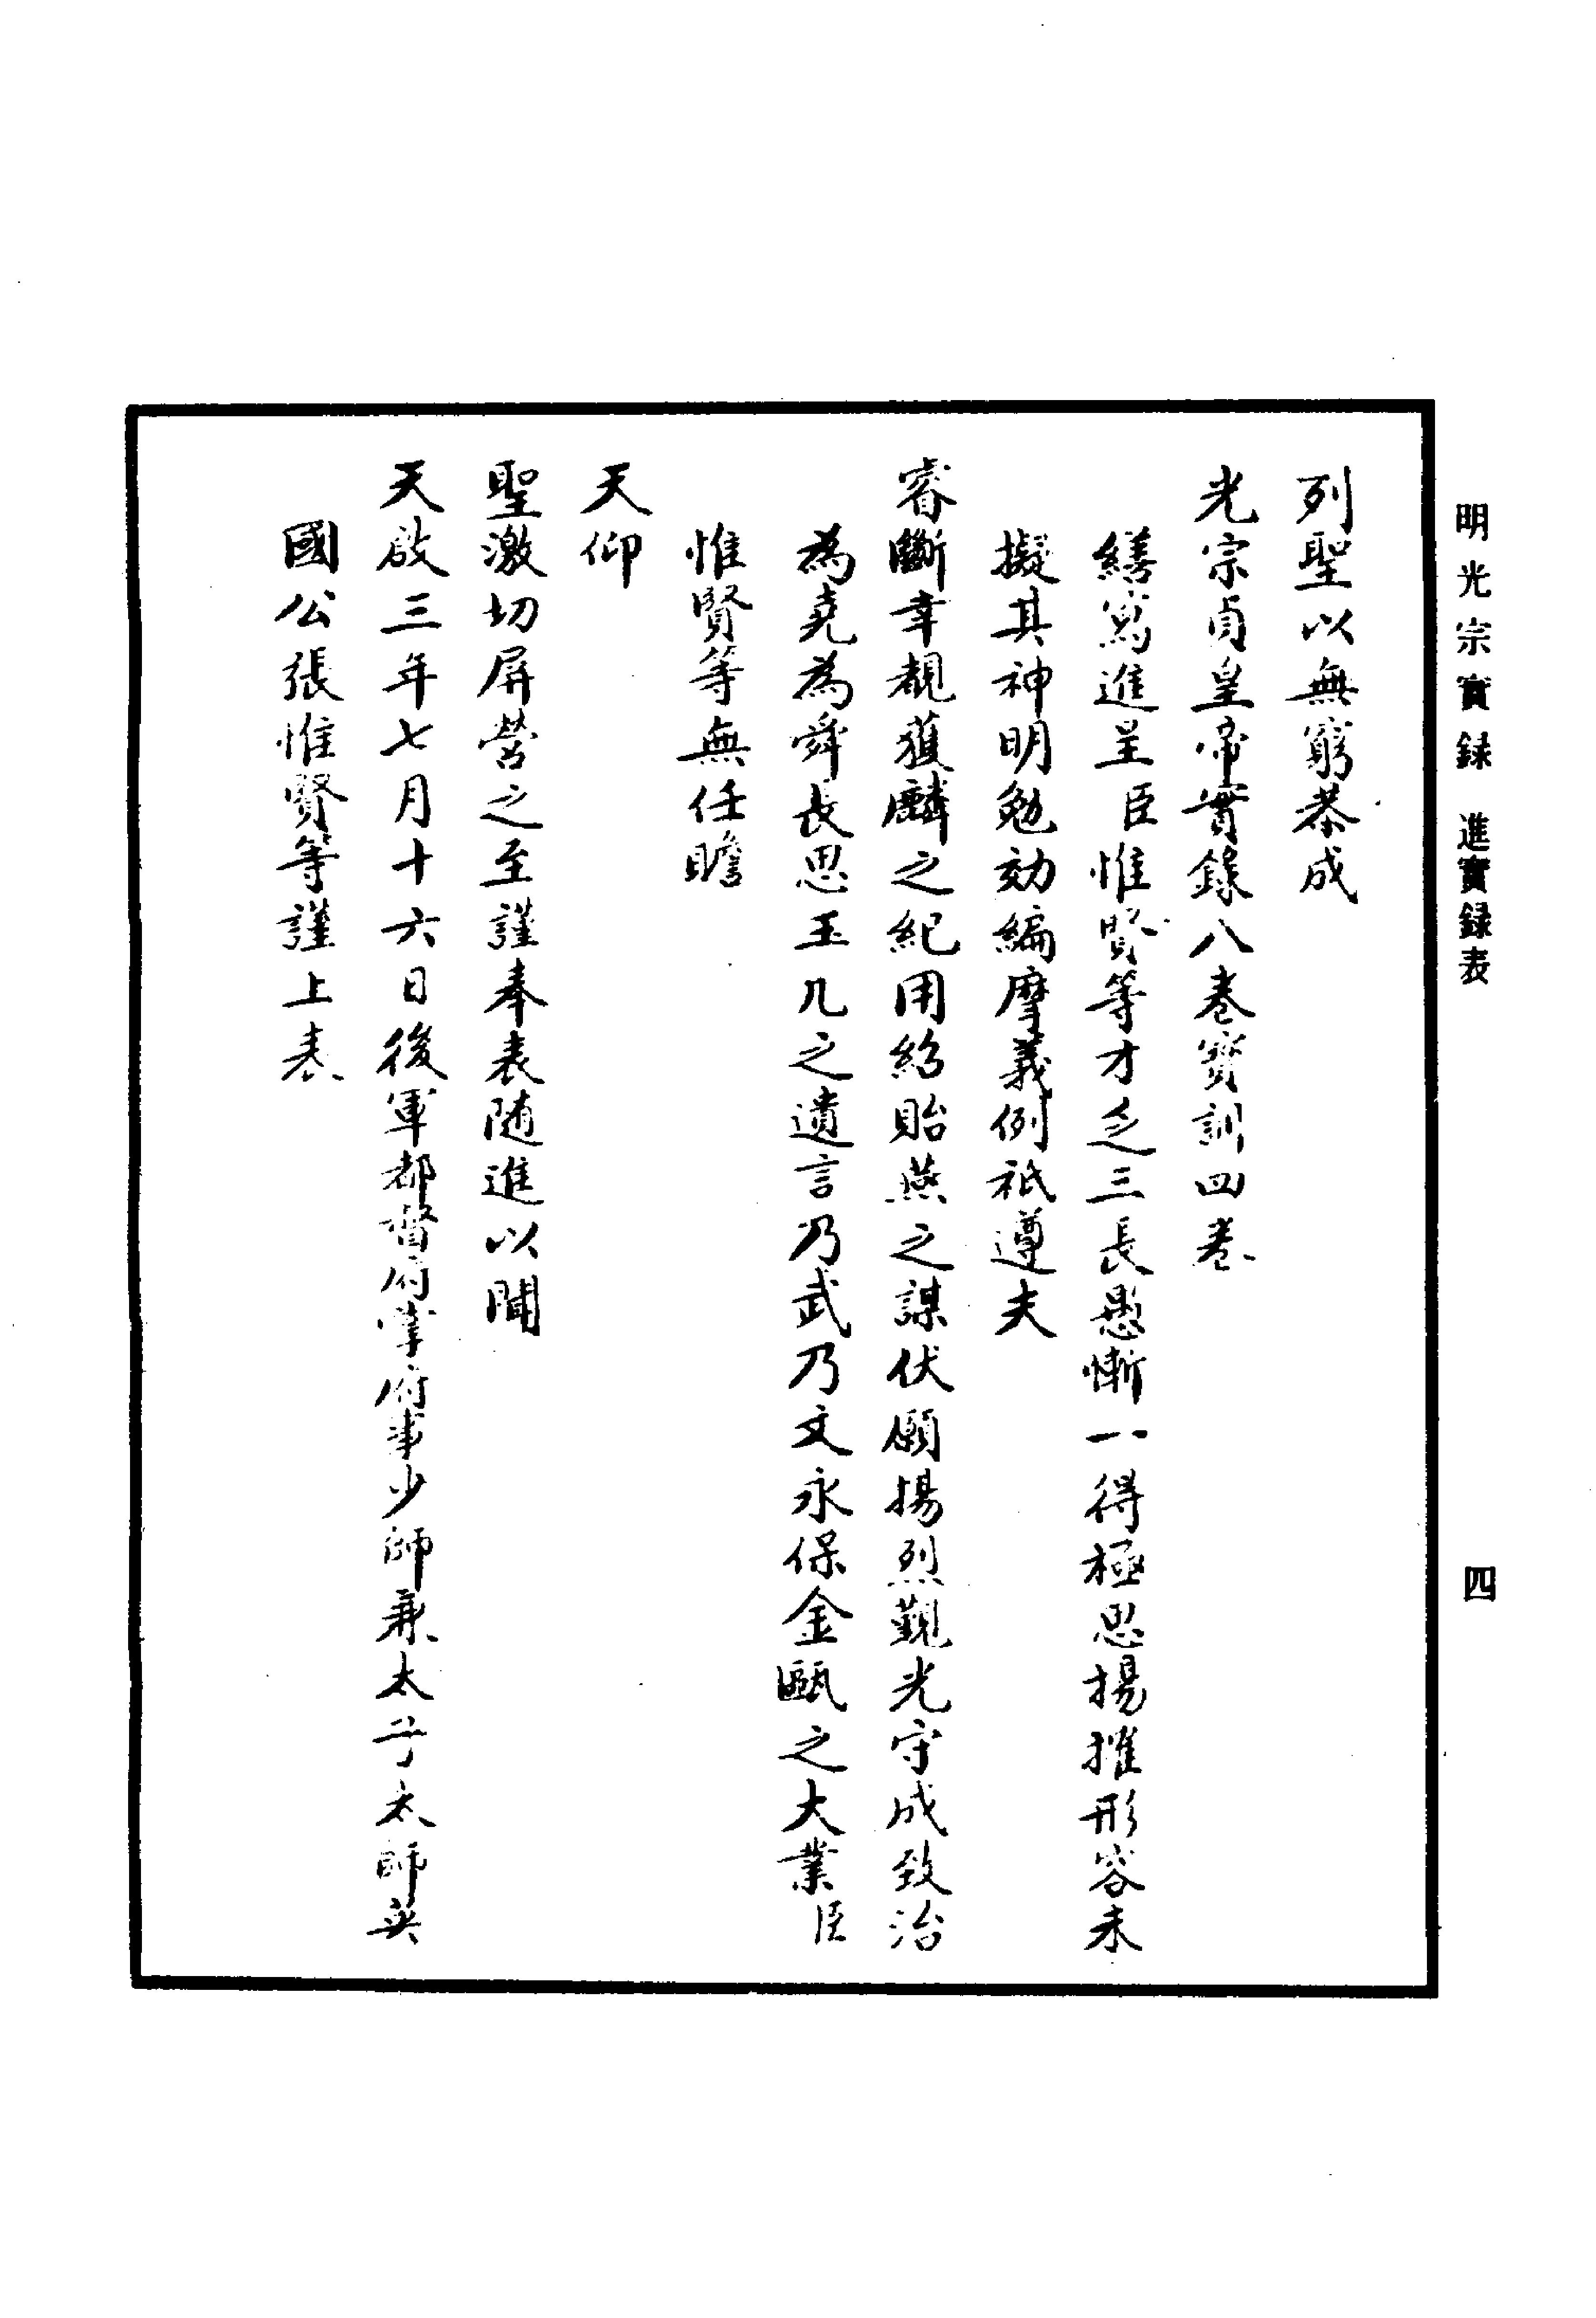 明光宗實録　進實録表　四
列聖以無窮恭成
光宗貞皇帝實錄八卷寶訓四卷
繕寫進呈臣惟賢等才乏三長愚慚一得極思揚搉形容未
擬其神明勉効編摩義例祇遵夫
睿斷幸覩獲麟之紀用紹貽燕之謀伏願揚烈覲光守成致治
為堯為舜長思玉几之遺言乃武乃文永保金甌之大業臣
惟賢等無任瞻
天仰
聖激切屏營之至謹奉表隨進以聞
天啟三年七月十六日後軍都督府掌府事少師兼太子太師英
國公張惟賢等謹上表